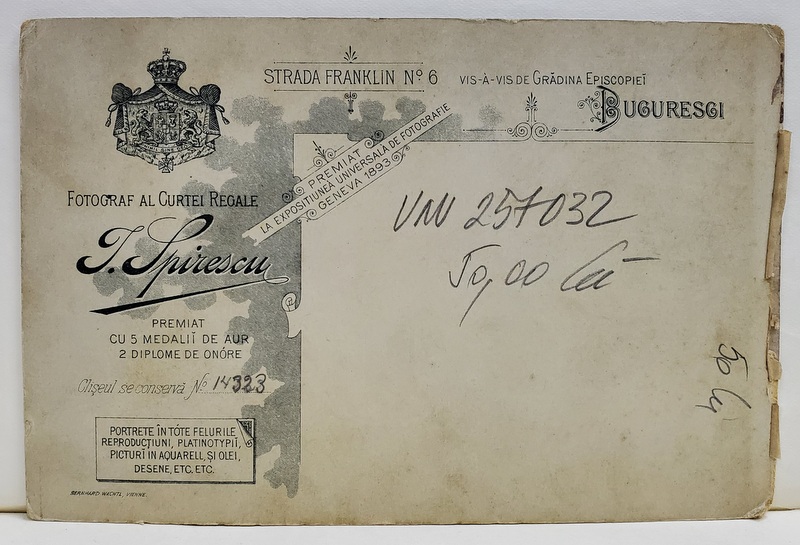 STRADA FRANKLIN Nº 6
VIS-À-VIS DE GRĂDINA EPISCOPIEĬ
BUCURESCI
PREMIAT
LA EXPOSITIUNEA UNIVERSALĂ DE FOTOGRAFIE
GENEVA 1893
FOTOGRAF AL CURTEI REGALE
J. Spirescu
PREMIAT
CU 5 MEDALIĬ DE AUR
2 DIPLOME DE ONÓRE
Clișeul se conservă Nº 14323
PORTRETE ÎN TÓTE FELURILE
REPRODUCȚIUNI, PLATINOTYPIĬ,
PICTURĬ IN AQUARELL, ȘI OLEI,
DESENE, ETC. ETC.
BERNHARD WACHTL, VIENNE.
257032
50,00 lei
50 lei